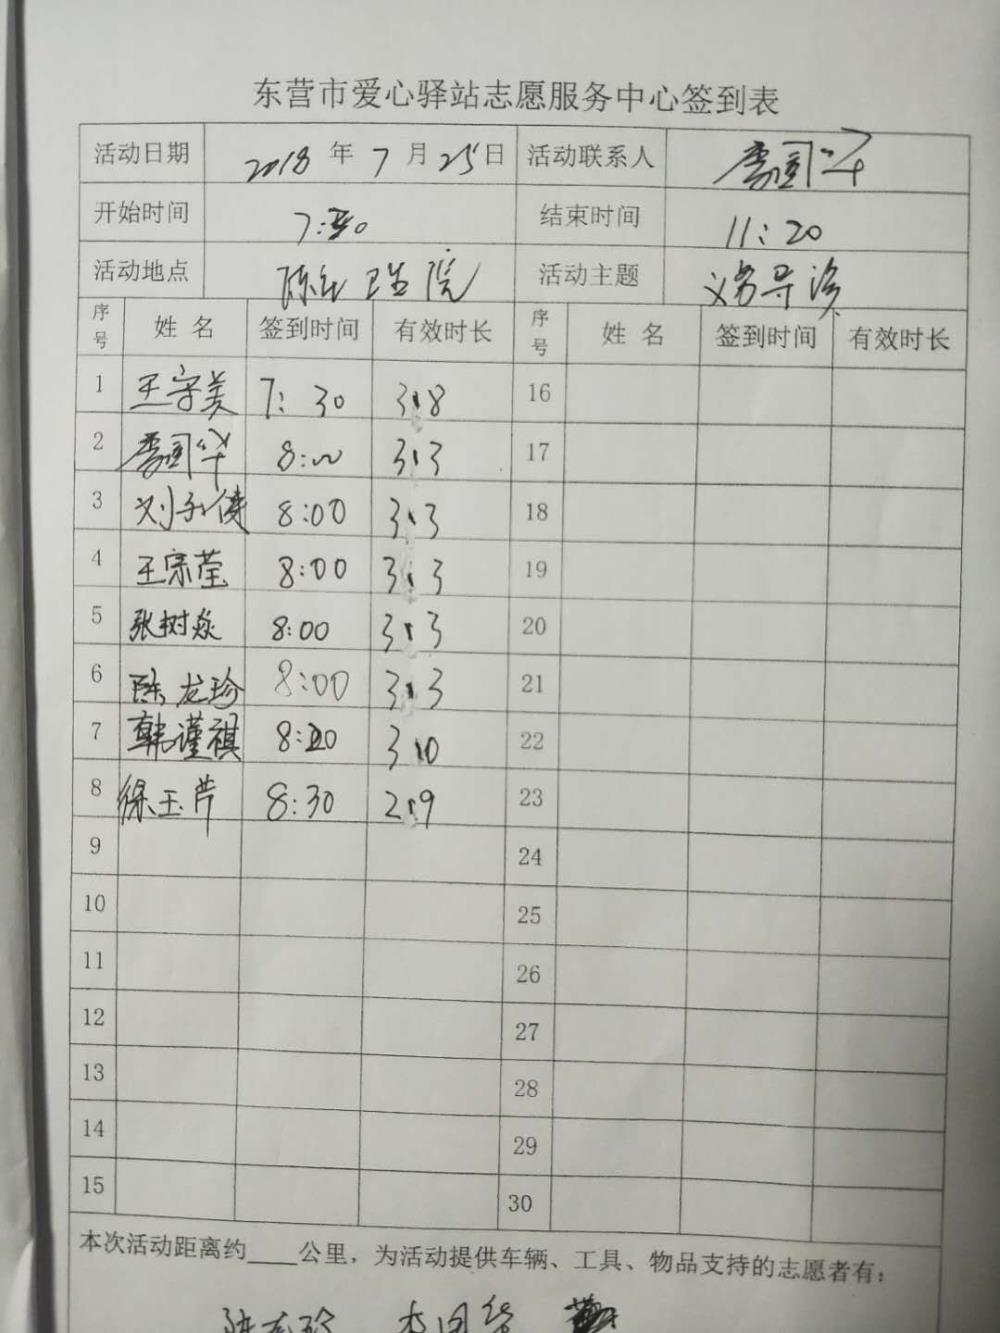 东营市爱心驿站志愿服务中心签到表
活动日期 2018 年 7 月 25 日 活动联系人 李国华
开始时间 7:30 结束时间 11:20
活动地点 卫生院 活动主题 义务导诊
序号 姓 名 签到时间 有效时长 序号 姓 名 签到时间 有效时长
1 王守美 7:30 3.8 16
2 李国华 8:00 3.3 17
3 刘 8:00 3.3 18
4 王宗莹 8:00 3.3 19
5 张树焱 8:00 3.3 20
6 陈龙珍 8:00 3.3 21
7 韩谨祺 8:20 3.0 22
8 徐玉芹 8:30 2.9 23
9 24
10 25
11 26
12 27
13 28
14 29
15 30
本次活动距离约____公里，为活动提供车辆、工具、物品支持的志愿者有：
李国华